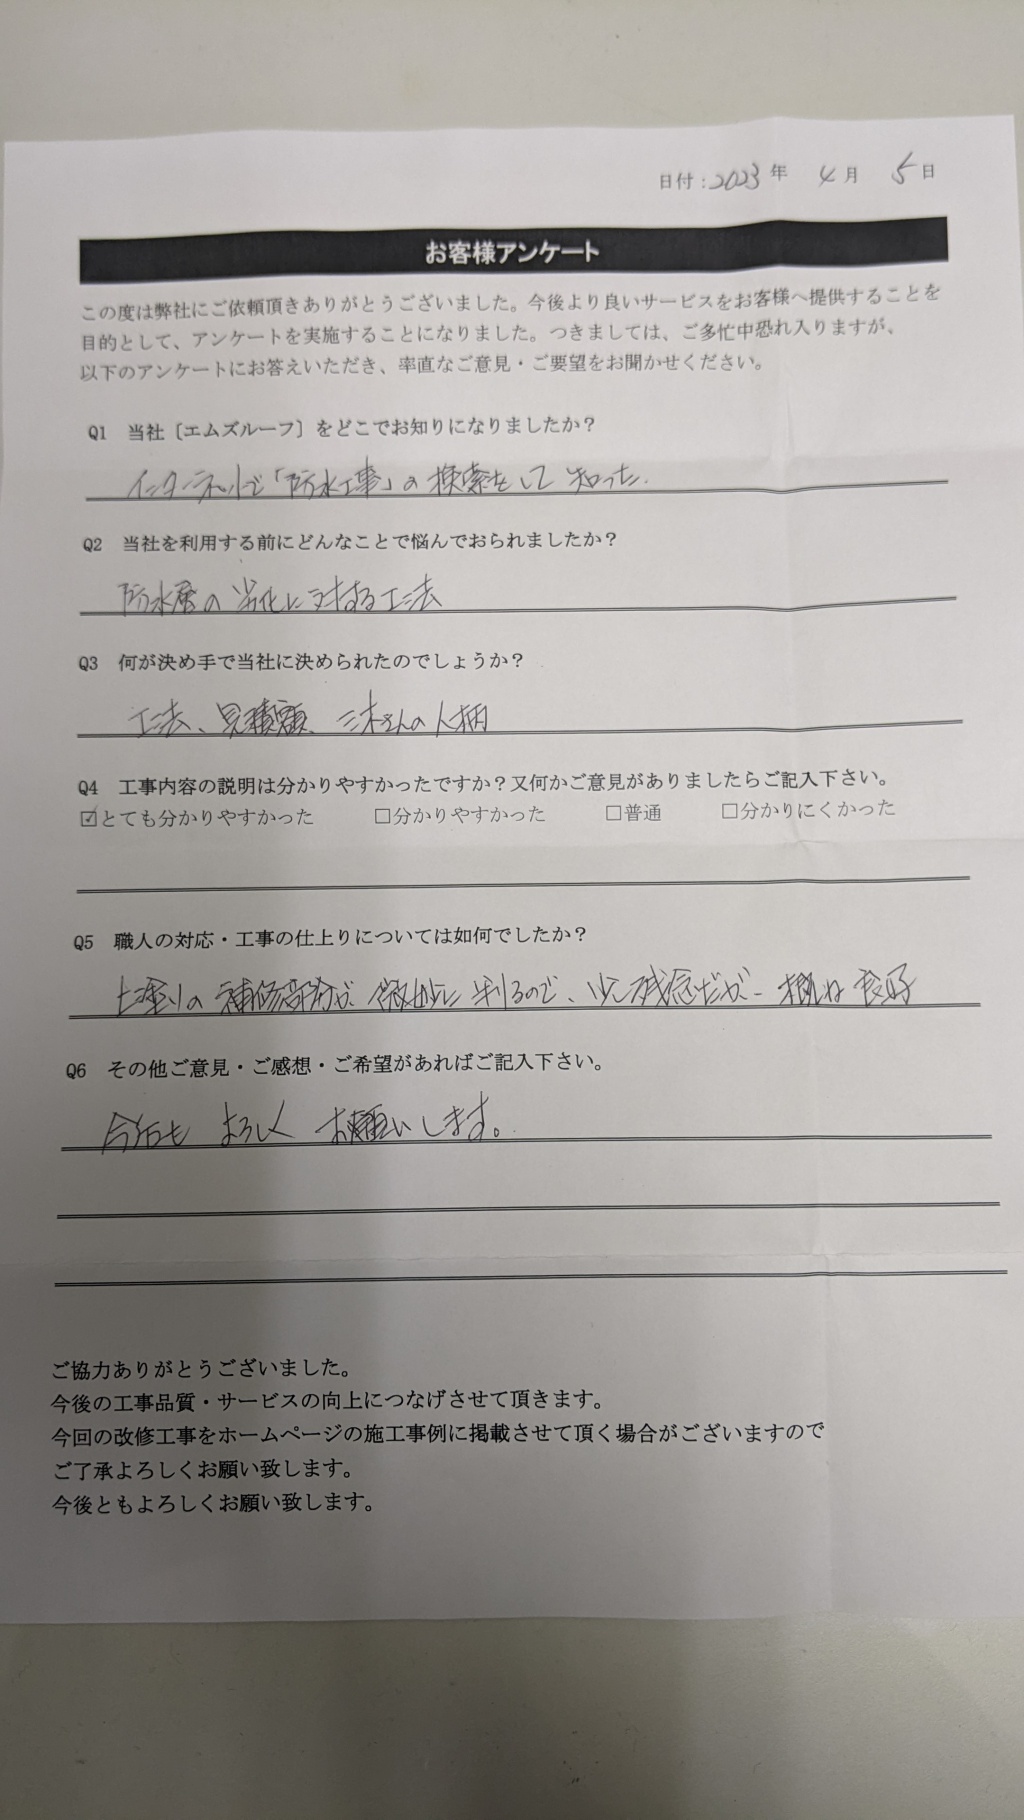 日付：2023年 4月 5日
お客様アンケート
この度は弊社にご依頼頂きありがとうございました。今後より良いサービスをお客様へ提供することを
目的として、アンケートを実施することになりました。つきましては、ご多忙中恐れ入りますが、
以下のアンケートにお答えいただき、率直なご意見・ご要望をお聞かせください。
Q1 当社〔エムズルーフ〕をどこでお知りになりましたか？
インターネットで「防水工事」の検索をして知った.
Q2 当社を利用する前にどんなことで悩んでおられましたか？
防水層の劣化に対する工法
Q3 何が決め手で当社に決められたのでしょうか？
工法、見積額、三木さんの人柄
Q4 工事内容の説明は分かりやすかったですか？又何かご意見がありましたらご記入下さい。
☑とても分かりやすかった □分かりやすかった □普通 □分かりにくかった
Q5 職人の対応・工事の仕上りについては如何でしたか？
上塗りの補修部分が 判るので、少し残念だが 概ね良好
Q6 その他ご意見・ご感想・ご希望があればご記入下さい。
今後も よろしく お願いします。
ご協力ありがとうございました。
今後の工事品質・サービスの向上につなげさせて頂きます。
今回の改修工事をホームページの施工事例に掲載させて頂く場合がございますので
ご了承よろしくお願い致します。
今後ともよろしくお願い致します。